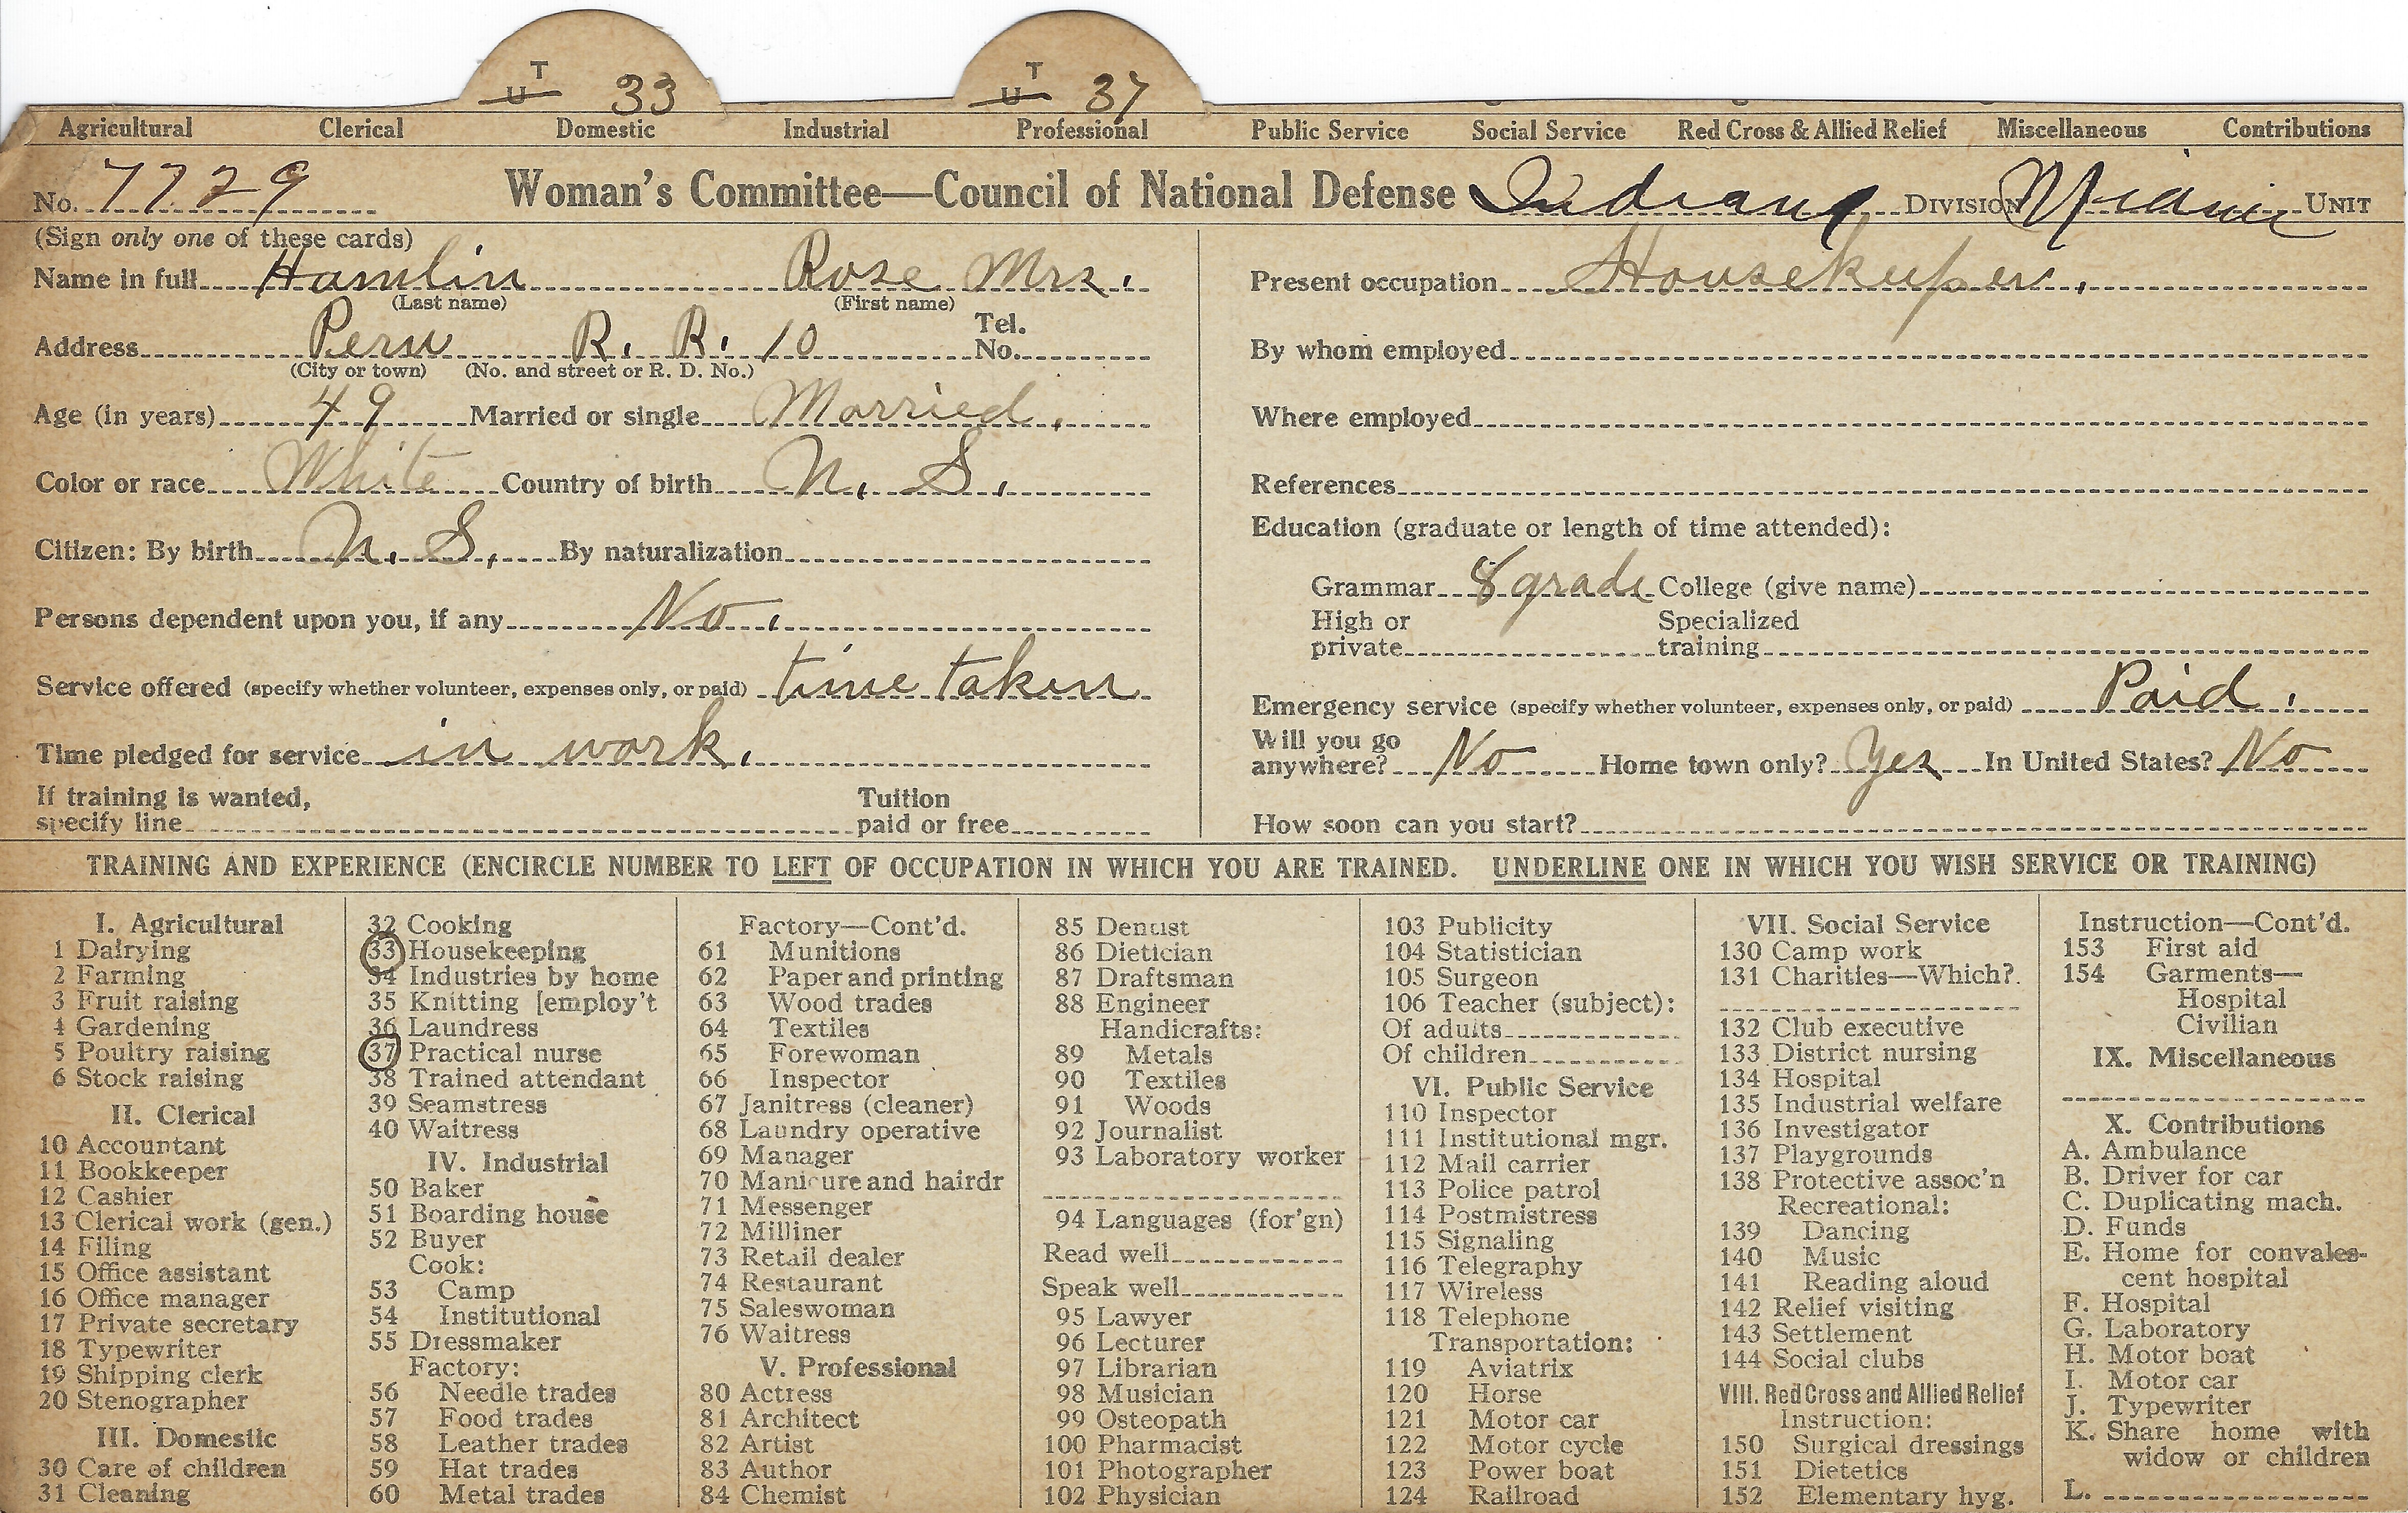 T T
U 33 U 37
Agricultural Clerical Domestic Industrial Professional Public Service Social Service Red Cross & Allied Relief Miscellaneous Contributions
No. 7729 Woman's Committee—Council of National Defense Indiana DIVISION Miami UNIT
(Sign only one of these cards)
Name in full Hamlin Rose Mrs.
(Last name) (First name)
Address Peru R. R. 10 Tel. No.
(City or town) (No. and street or R. D. No.)
Age (in years) 49 Married or single Married.
Color or race White Country of birth U. S.
Citizen: By birth U. S. By naturalization
Persons dependent upon you, if any No.
Service offered (specify whether volunteer, expenses only, or paid) time taken
Time pledged for service in work.
If training is wanted, Tuition
specify line paid or free
Present occupation Housekeeper.
By whom employed
Where employed
References
Education (graduate or length of time attended):
Grammar 8 grade College (give name)
High or Specialized
private training
Emergency service (specify whether volunteer, expenses only, or paid) Paid.
Will you go
anywhere? No Home town only? Yes In United States? No
How soon can you start?
TRAINING AND EXPERIENCE (ENCIRCLE NUMBER TO LEFT OF OCCUPATION IN WHICH YOU ARE TRAINED. UNDERLINE ONE IN WHICH YOU WISH SERVICE OR TRAINING)
I. Agricultural
1 Dairying
2 Farming
3 Fruit raising
4 Gardening
5 Poultry raising
6 Stock raising
II. Clerical
10 Accountant
11 Bookkeeper
12 Cashier
13 Clerical work (gen.)
14 Filing
15 Office assistant
16 Office manager
17 Private secretary
18 Typewriter
19 Shipping clerk
20 Stenographer
III. Domestic
30 Care of children
31 Cleaning
32 Cooking
33 Housekeeping
34 Industries by home
35 Knitting [employ't
36 Laundress
37 Practical nurse
38 Trained attendant
39 Seamstress
40 Waitress
IV. Industrial
50 Baker
51 Boarding house
52 Buyer
Cook:
53 Camp
54 Institutional
55 Dressmaker
Factory:
56 Needle trades
57 Food trades
58 Leather trades
59 Hat trades
60 Metal trades
Factory—Cont'd.
61 Munitions
62 Paper and printing
63 Wood trades
64 Textiles
65 Forewoman
66 Inspector
67 Janitress (cleaner)
68 Laundry operative
69 Manager
70 Manicure and hairdr
71 Messenger
72 Milliner
73 Retail dealer
74 Restaurant
75 Saleswoman
76 Waitress
V. Professional
80 Actress
81 Architect
82 Artist
83 Author
84 Chemist
85 Dentist
86 Dietician
87 Draftsman
88 Engineer
Handicrafts:
89 Metals
90 Textiles
91 Woods
92 Journalist
93 Laboratory worker
94 Languages (for'gn)
Read well
Speak well
95 Lawyer
96 Lecturer
97 Librarian
98 Musician
99 Osteopath
100 Pharmacist
101 Photographer
102 Physician
103 Publicity
104 Statistician
105 Surgeon
106 Teacher (subject):
Of adults
Of children
VI. Public Service
110 Inspector
111 Institutional mgr.
112 Mail carrier
113 Police patrol
114 Postmistress
115 Signaling
116 Telegraphy
117 Wireless
118 Telephone
Transportation:
119 Aviatrix
120 Horse
121 Motor car
122 Motor cycle
123 Power boat
124 Railroad
VII. Social Service
130 Camp work
131 Charities—Which?
132 Club executive
133 District nursing
134 Hospital
135 Industrial welfare
136 Investigator
137 Playgrounds
138 Protective assoc'n
Recreational:
139 Dancing
140 Music
141 Reading aloud
142 Relief visiting
143 Settlement
144 Social clubs
VIII. Red Cross and Allied Relief
Instruction:
150 Surgical dressings
151 Dietetics
152 Elementary hyg.
Instruction—Cont'd.
153 First aid
154 Garments—
Hospital
Civilian
IX. Miscellaneous
X. Contributions
A. Ambulance
B. Driver for car
C. Duplicating mach.
D. Funds
E. Home for convales-
cent hospital
F. Hospital
G. Laboratory
H. Motor boat
I. Motor car
J. Typewriter
K. Share home with
widow or children
L.